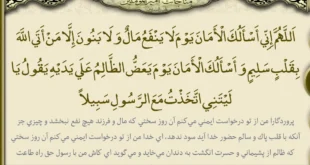 اَللّهُمَّ اِنّى اَسْاَلُكَ الْاَمانَ يَوْمَ لا يَنْفَعُ مالٌ وَلا بَنُونَ اِلاَّ مَنْ اَتَى اللهَ
بِقَلْبٍ سَليمٍ وَ اَسْاَلُكَ الْاَمانَ يَوْمَ يَعَضُّ الظّالِمُ عَلى يَدَيْهِ يَقُولُ يا
لَيْتَنى اتَّخَذْتُ مَعَ الرَّسُولِ سَبيلاً
پروردگارا من از تو درخواست ايمني مي‌كنم آن روز سختي كه مال و فرزند هيچ نفع نبخشد و چيزي جز
آنكه با قلب پاك و سالم حضور خدا آيد سود ندهد، اي خدا من از تو درخواست ايمني مي‌كنم آن روز سختي
كه ظالم از پشيماني و حسرت انگشت به دندان مي‌خايد و مي‌گويد اي كاش من با رسول حق راه طاعت